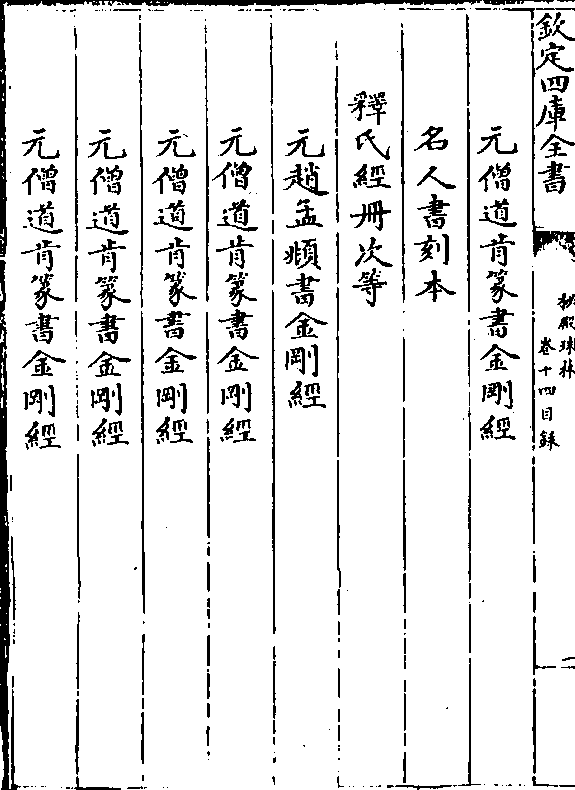 欽定四庫全書
秘殿珠林
卷十四目錄
元僧道肯篆書金剛經
名人書刻本
釋氏經冊次等
元趙孟頫書金剛經
元僧道肯篆書金剛經
元僧道肯篆書金剛經
元僧道肯篆書金剛經
元僧道肯篆書金剛經